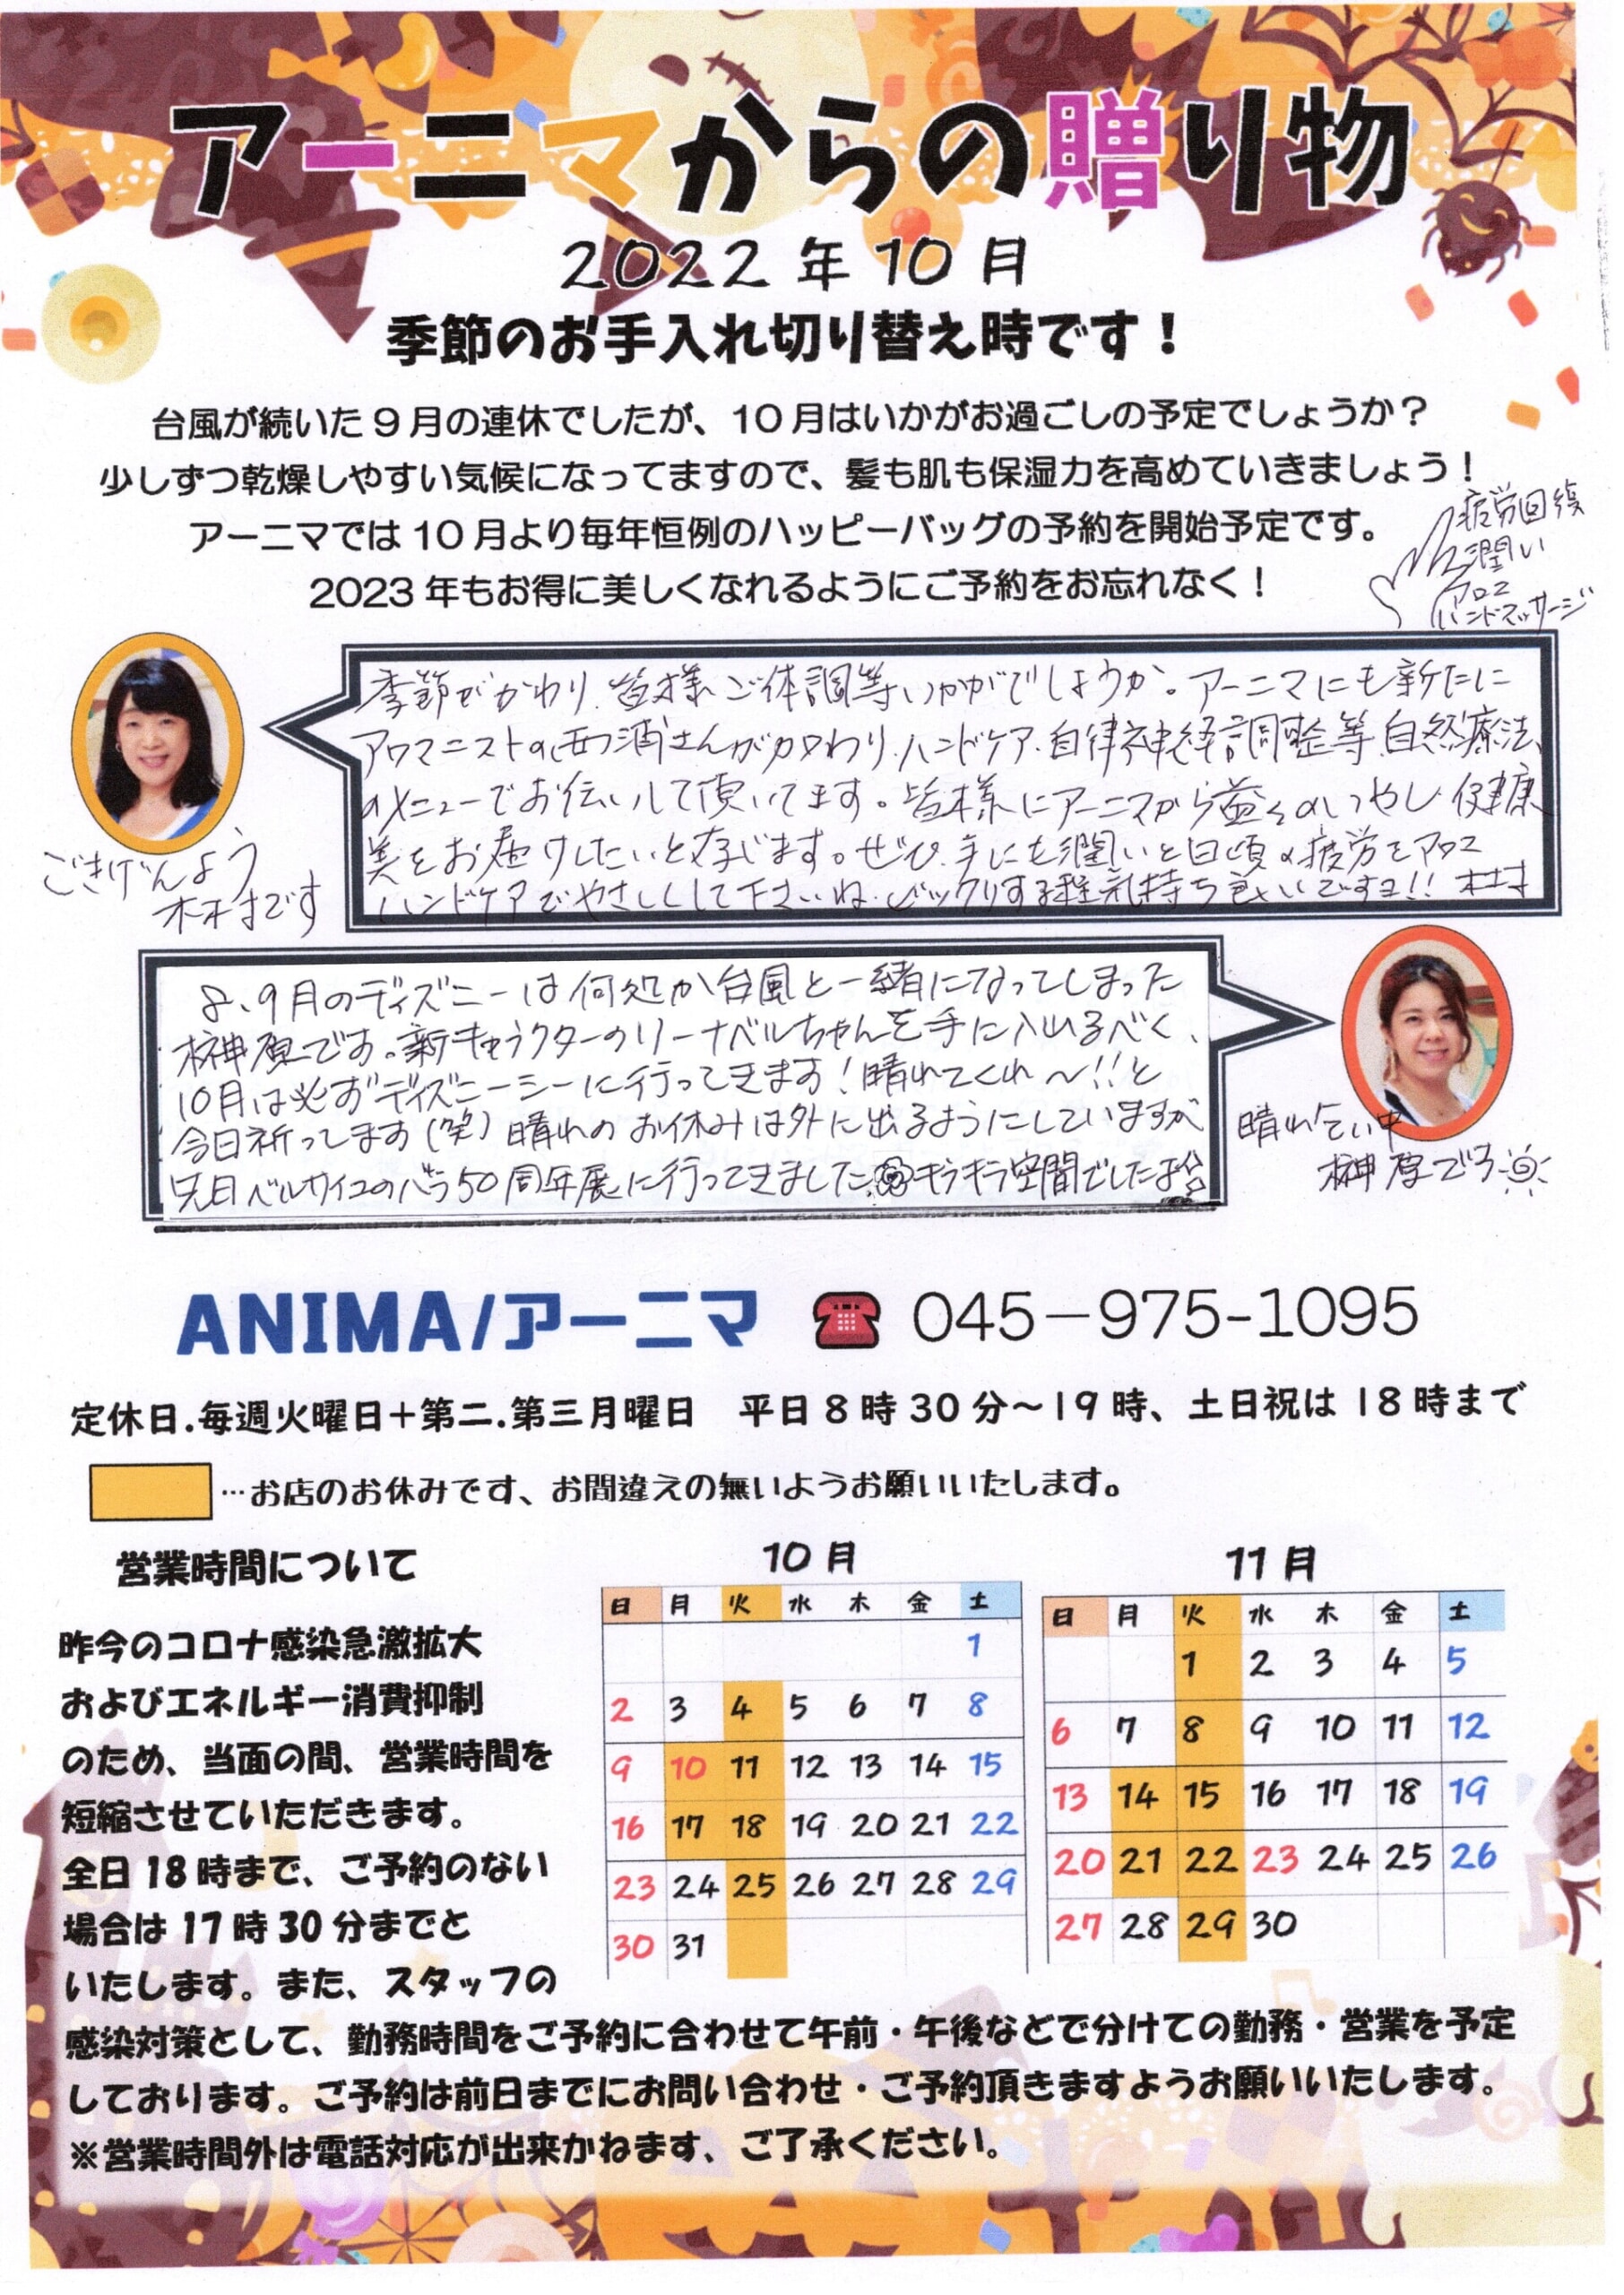 アーニマからの贈り物
2022年10月
季節のお手入れ切り替え時です！
台風が続いた9月の連休でしたが、10月はいかがお過ごしの予定でしょうか？
少しずつ乾燥しやすい気候になってますので、髪も肌も保湿力を高めていきましょう！
アーニマでは10月より毎年恒例のハッピーバッグの予約を開始予定です。
2023年もお得に美しくなれるようにご予約をお忘れなく！
疲労回復
潤い
アロマ
ハンドマッサージ
季節がかわり、皆様ご体調等いかがでしょうか。アーニマにも新たに
アロマニストの西浦さんが加わり、ハンドケア、自律神経調整等、自然療法
のメニューでお伝いして頂いてます。皆様にアーニマから益々のいやし、健康
美をお届けしたいと存じます。ぜひ、手にも潤いと日頃の疲労をアロマ
ハンドケアでやさしくして下さいね。ビックリする程気持ち良いですヨ!! 木村
ごきげんよう
木村です
8、9月のディズニーは何処か台風と一緒になってしまった
榊原です。新キャラクターのリーナベルちゃんを手に入れるべく、
10月は必ずディズニーシーに行ってきます！晴れてくれ～!!と
今日祈ってます(笑) 晴れのお休みは外に出るようにしていますが
先日ベルサイユのバラ50周年展に行ってきました キラキラ空間でしたよ☆
晴れ乞い中
榊原です
ANIMA/アーニマ ☎ 045－975-1095
定休日.毎週火曜日＋第二.第三月曜日　平日8時30分～19時、土日祝は18時まで
…お店のお休みです、お間違えの無いようお願いいたします。
営業時間について
昨今のコロナ感染急激拡大
およびエネルギー消費抑制
のため、当面の間、営業時間を
短縮させていただきます。
全日18時まで、ご予約のない
場合は17時30分までと
いたします。また、スタッフの
感染対策として、勤務時間をご予約に合わせて午前・午後などで分けての勤務・営業を予定
しております。ご予約は前日までにお問い合わせ・ご予約頂きますようお願いいたします。
※営業時間外は電話対応が出来かねます、ご了承ください。
10月
日 月 火 水 木 金 土
1
2 3 4 5 6 7 8
9 10 11 12 13 14 15
16 17 18 19 20 21 22
23 24 25 26 27 28 29
30 31
11月
日 月 火 水 木 金 土
1 2 3 4 5
6 7 8 9 10 11 12
13 14 15 16 17 18 19
20 21 22 23 24 25 26
27 28 29 30